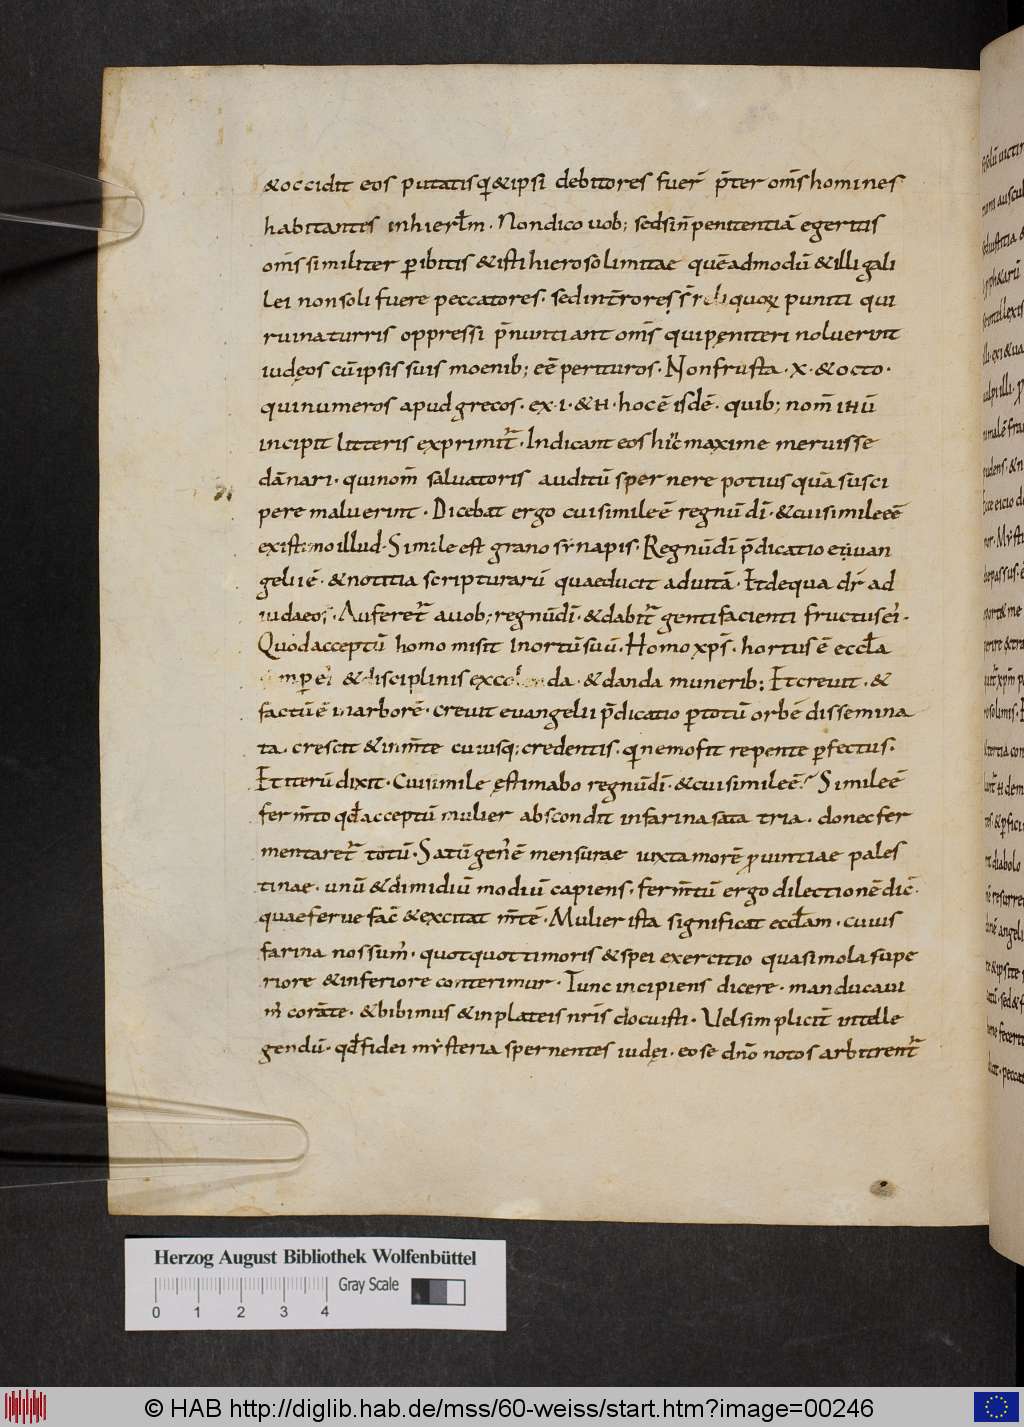 &occidit eos putatis qi&ipsi debitores fuer̄ p̄ter om̄s homines
habitantes inhierłm · Nondico uob; sedsin̄penitentiā egeritis
om̄s similiter peribitis &isti hierosolimitae quēadmodū &illi gali
lei nonsoli fuere peccatores · sed
quoꝝ puniti qui
ruina turris oppressi p̄nuntiant om̄s quipęniteri noluerint
iudęos cūipsis suis moenib; eē perituros · Nonfrusta · x · &octo ·
quinumeros apud grecos · ex · i · & H · hoc ē isdē · quib; nom̄ iHū
incipit litteris exprimit̃ · Indicant eos hi͛c maxime meruisse
dānari · quinom̄ saluatoris auditū spernere potius quā susci
pere maluerint · Dicebat ergo cuisimile ē regnū dī · &cuisimileeē
existimo illud · Simile est grano synapis · Regnūdī p̄dicatio euuan
gelii ē · &notitia scripturarū quaeducit aduitā · Etdequa dr̄ ad
iudaeos · Auferet̃ auob; regnūdī · &dabit̃ genti facienti fructus ei᾽ ·
Quod acceptū homo misit inortū suū · Homo xp̄s · hortus ē eccła
&disciplinis
da · &danda munerib; Etcreuit · &
factū ē inarborē · creuit euangelii p̄dicatio ptotū orbē dissemina
ta · crescit &inm̄te cuiusq; credentis · qi nemo fit repente pfectus ·
Etiterū dixit · Cuisimile ęstimabo regnūdī · &cuisimile ē? Simile ē
ferm̄to qđ acceptū mulier abscondit infarina sata tria · donec fer
mentaret̃ totū · Satū gen᾽ ē mensurae iuxta morē prouintiae pales
tinae · unū &dimidiū modiū capiens · ferm̄tū ergo dilectionē dic̄ ·
quae ferue fac̄ &excitat m̄tē · Mulier ista significat eccłam · cuius
farina nos sum᾽ · quotquot timoris &spei exercitio quasi mola supe
riore &inferiore conterimur · Tunc incipiens dicere · manducaui
m᾽ corāte · &bibimus &inplateis nr̄is docuisti · Uel simplicit̄ intelle
gendū · qđ fidei mysteria spernentes iudęi · eo se dn̄o notos arbitrent̃
Herzog August Bibliothek Wolfenbüttel
0 1 2 3 4 Gray Scale
© HAB http://diglib.hab.de/mss/60-weiss/start.htm?image=00246